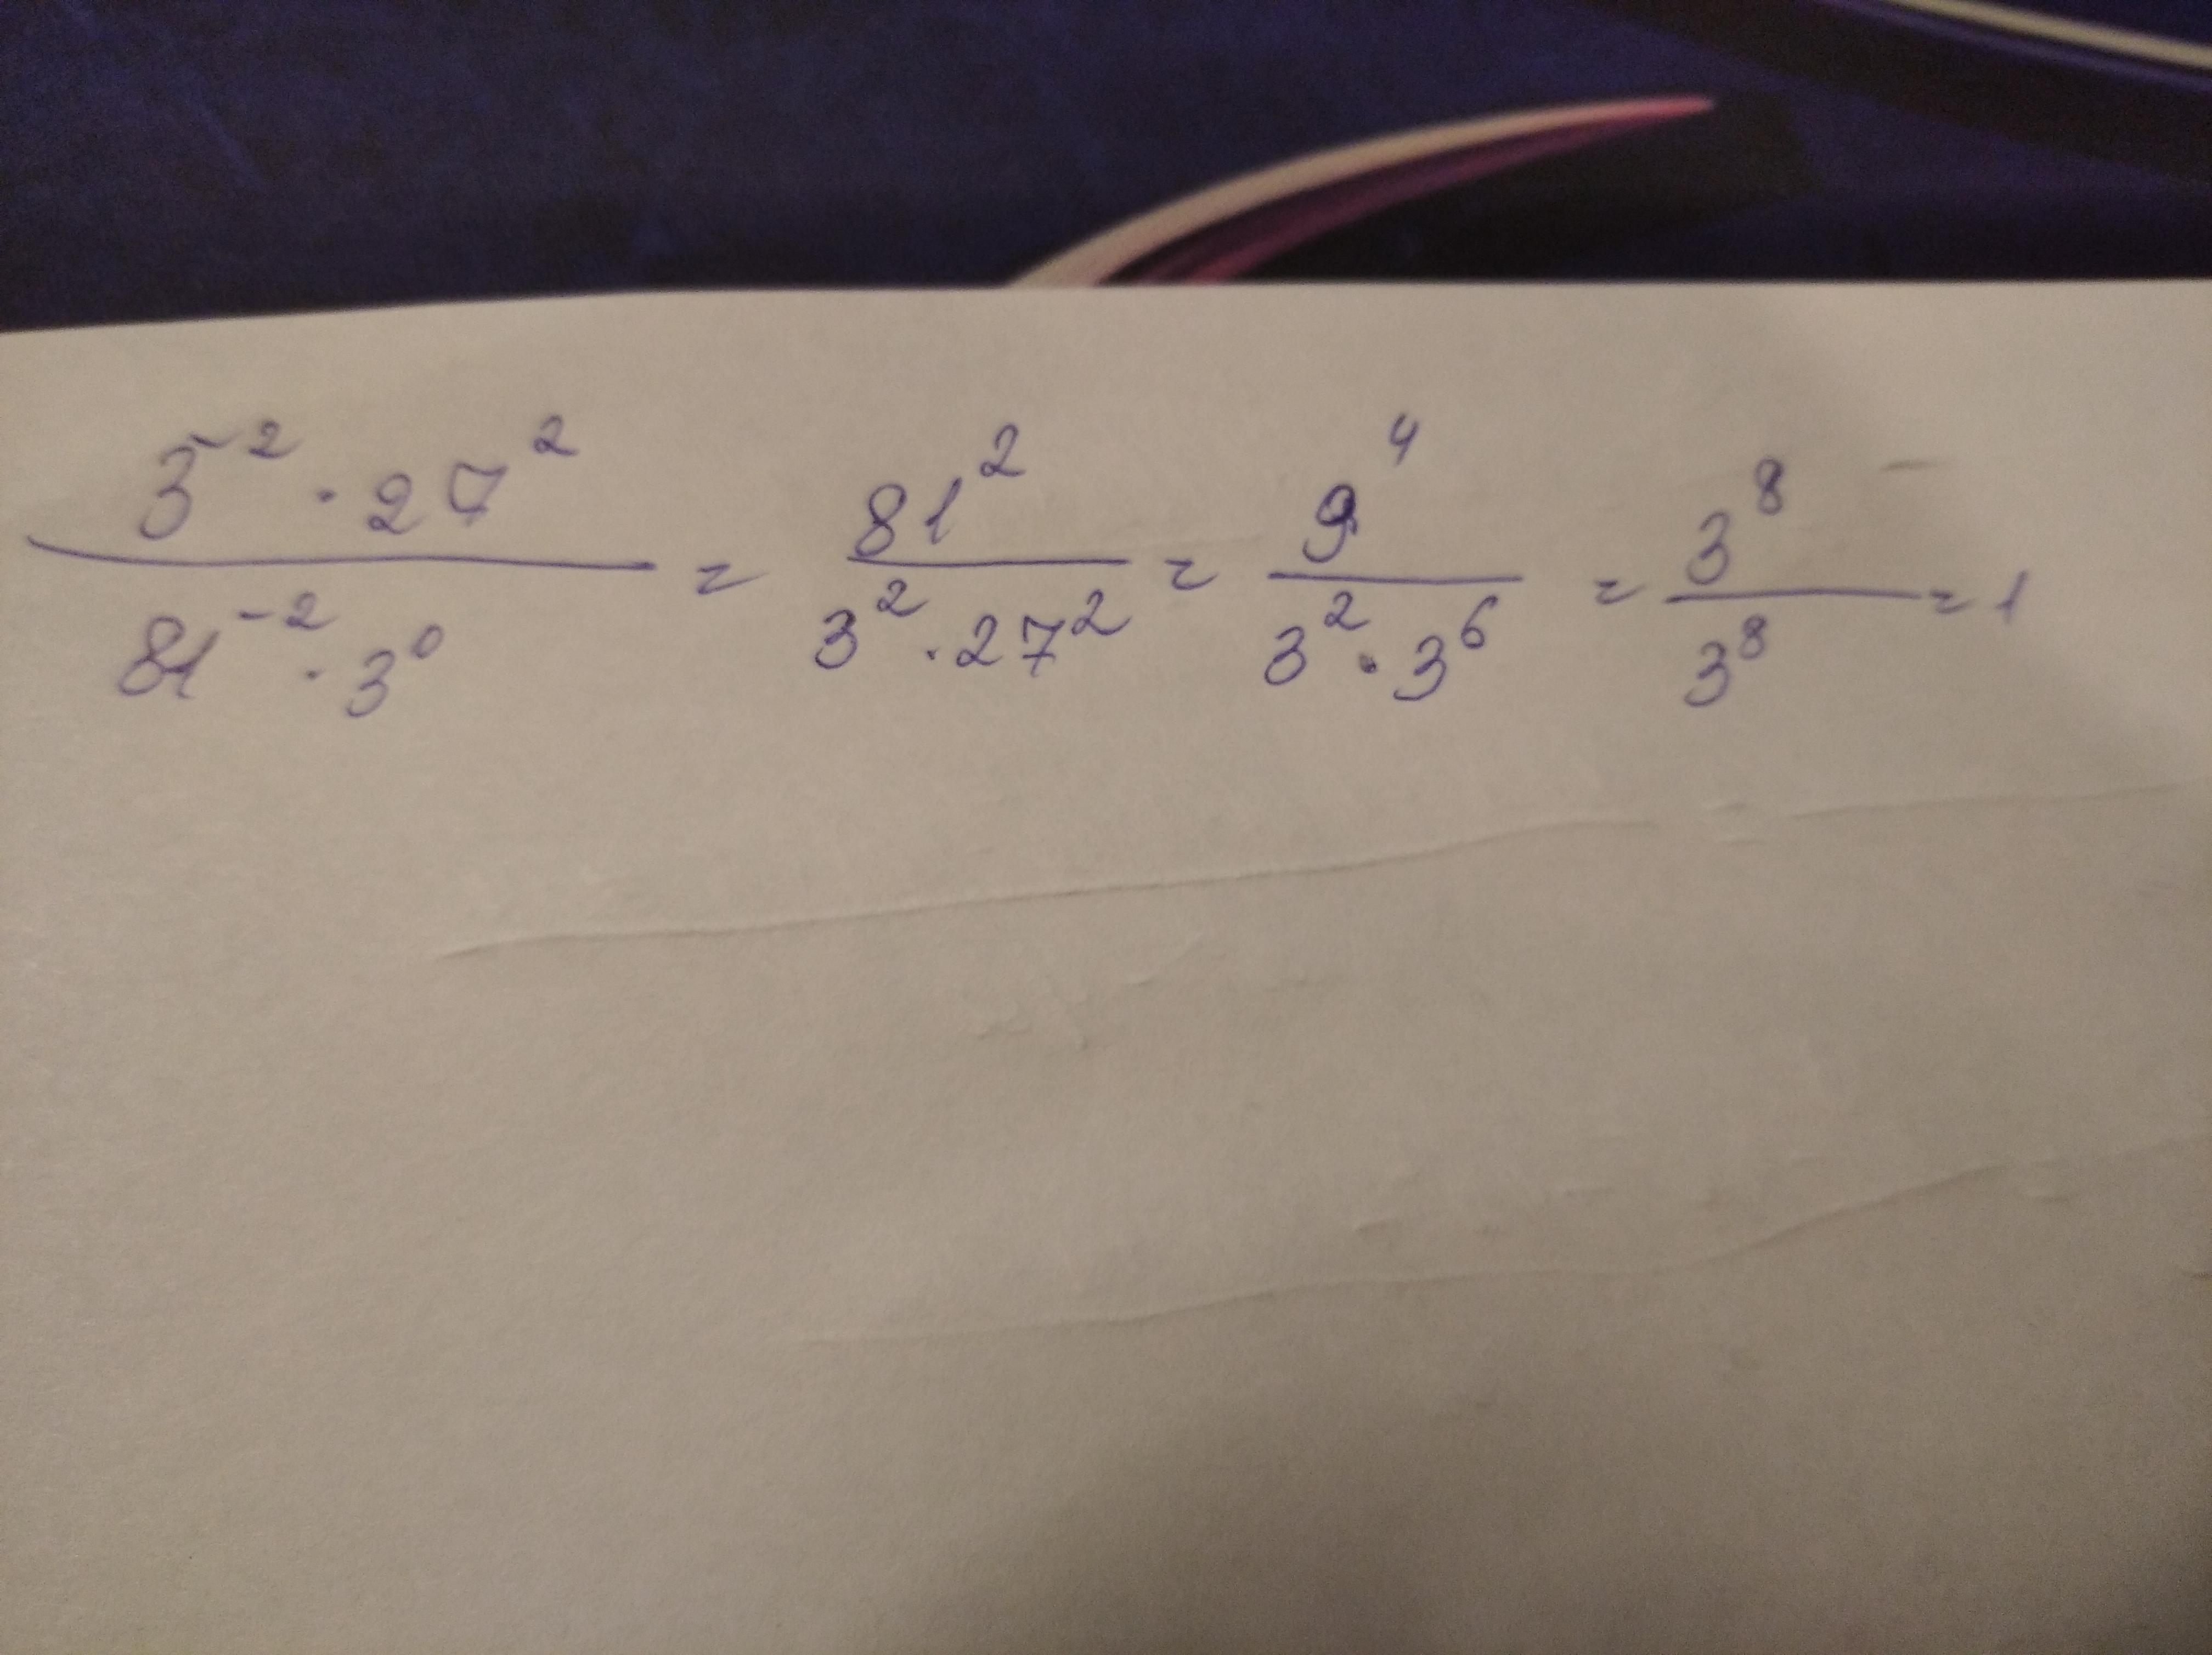 (3⁻² · 27²)/(81⁻² · 3⁰) = 81²/(3² · 27²) = 9⁴/(3² · 3⁶) = 3⁸/3⁸ = 1